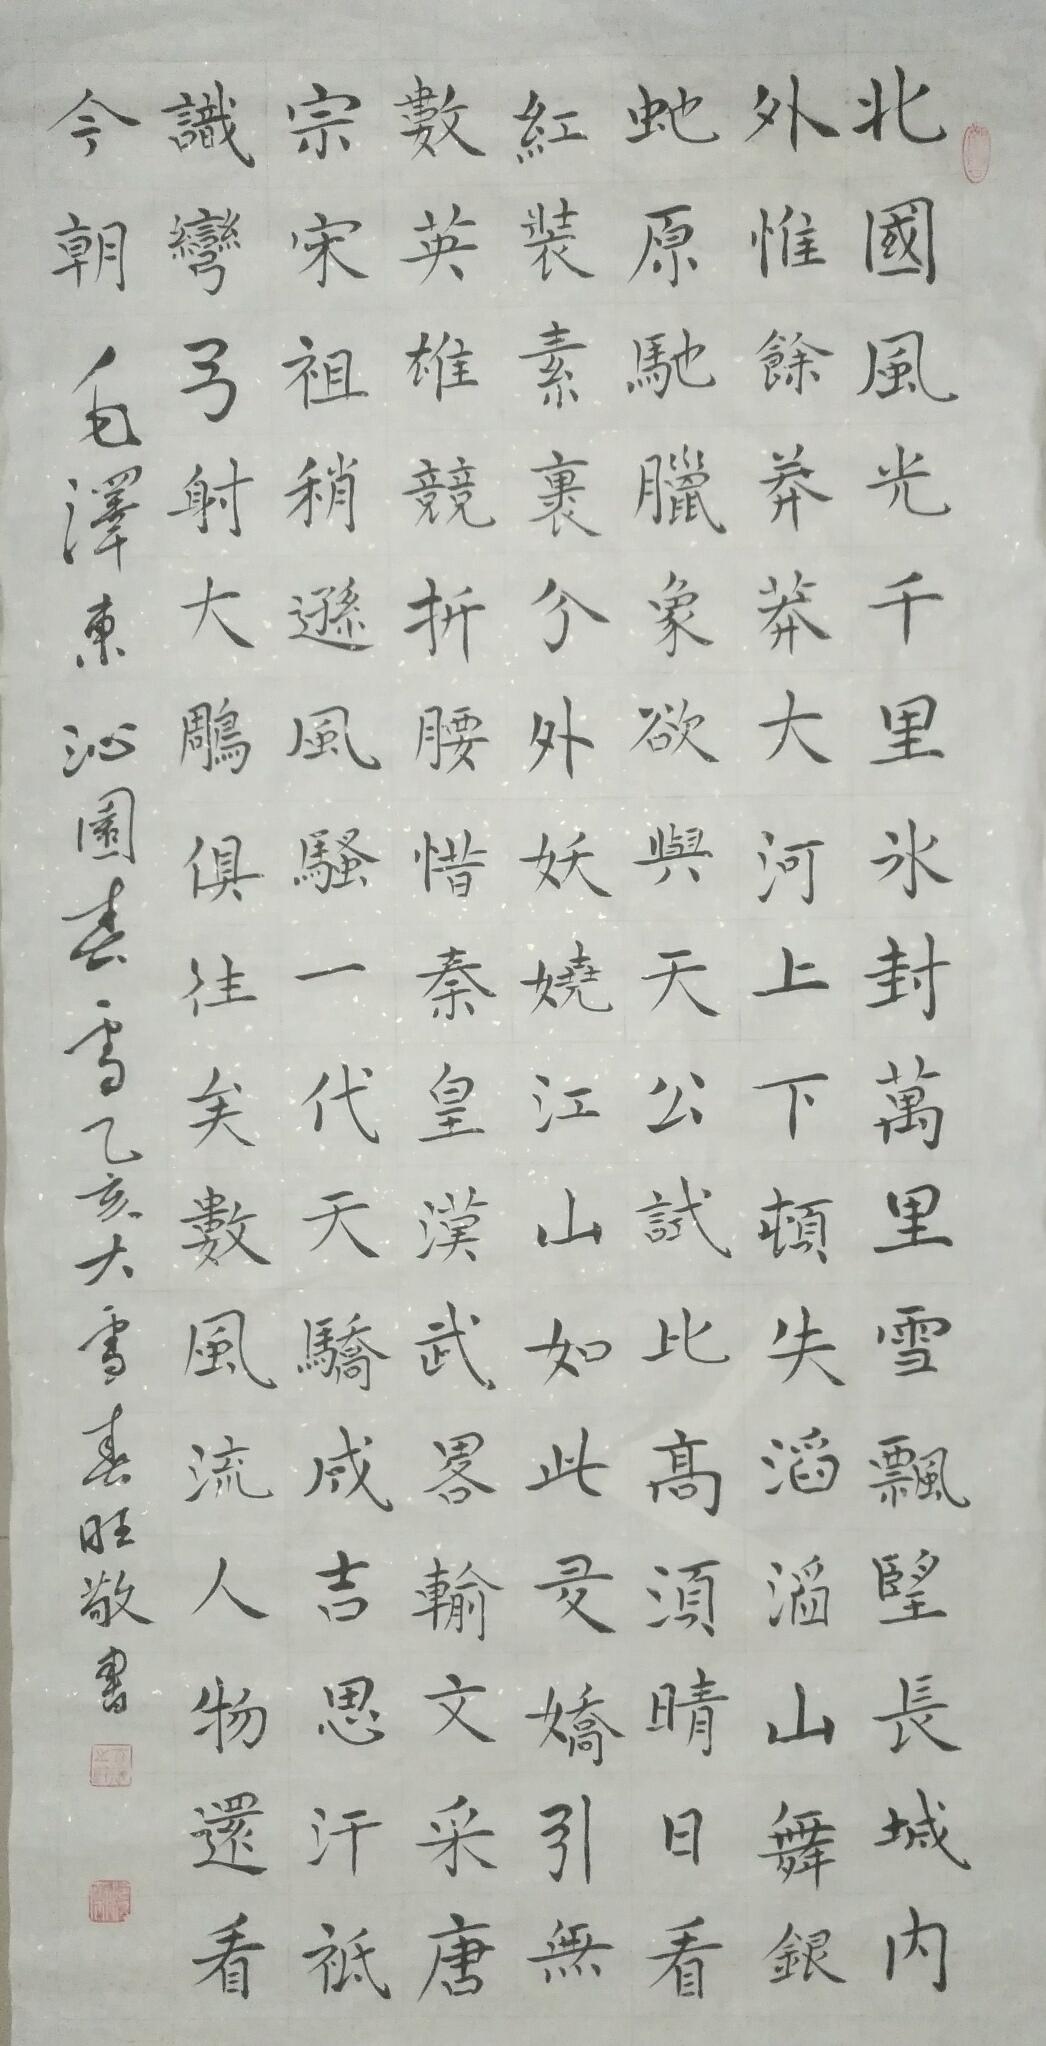 北國風光千里氷封萬里雪飄朢長城内
外惟餘莽莽大河上下頓失滔滔山舞銀
虵原馳臘象欲與天公試比髙須晴日看
紅裝素裹分外妖嬈江山如此夛嬌引無
數英雄競折腰惜秦皇漢武畧輸文采唐
宗宋祖稍遜風騷一代天驕成吉思汗祗
識彎弓射大鵰俱往矣數風流人物還看
今朝 毛澤東 沁園春雪乙亥大雪春旺敬書